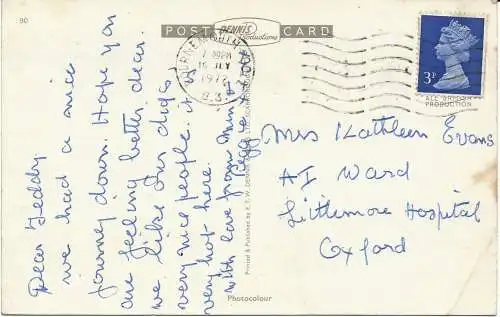 80
POST CARD
DENNIS
Productions
BOURNEMOUTH
16 JLY
1972
3P
ALL BRITISH
PRODUCTION
Dear Teddy
we had a nice
journey down. Hope you
are feeling better dear.
we like our digs
very nice people, it is
very hot here.
with love from Mum
Mrs Kathleen Evans
AI Ward
Littlemore Hospital
Oxford
Printed & Published by E. T. W. DENNIS
Photocolour